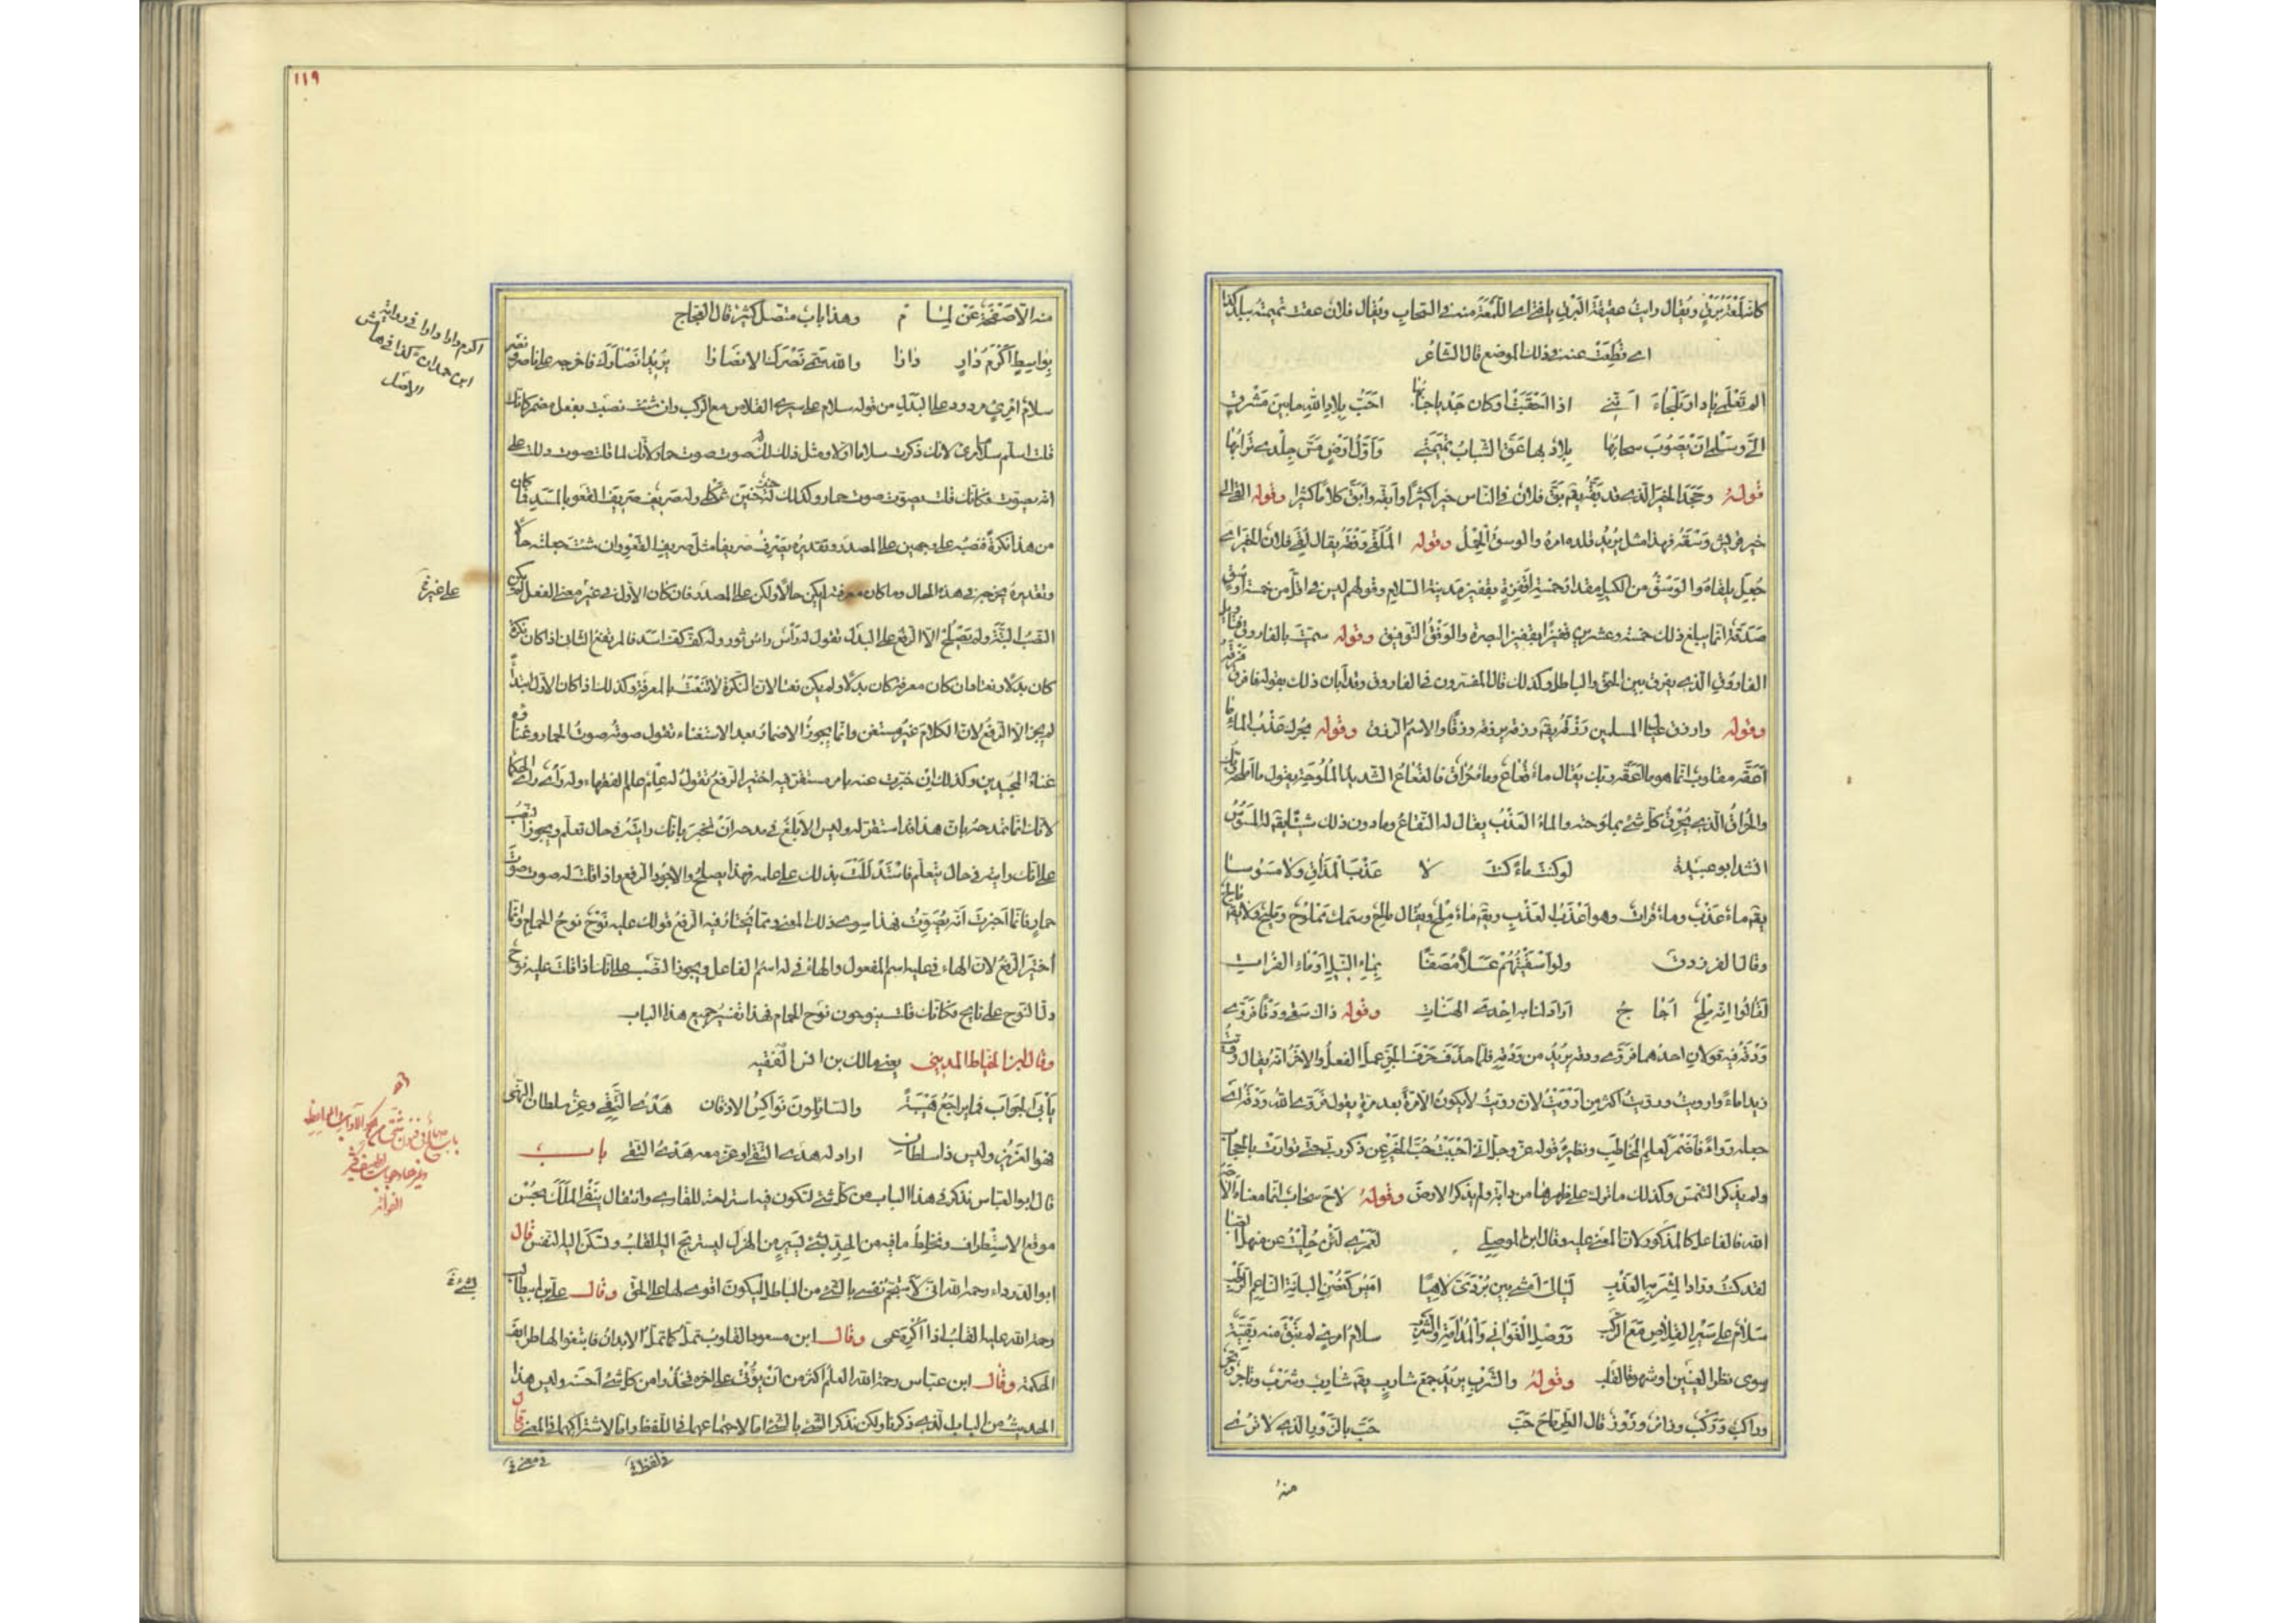 كانه لمعة برق ويقال رايت عقيقة البرق يا فتى اى اللمعة منه فى السحاب ويقال فلان عقت تميمته ببلد كذا
اى قطعت عنه فى ذلك الموضع قال الشاعر
الم تعلمى يا دار بلجاء اننى اذا اخصبت او كان جدبا جنابها احب بلاد الله ما بين مشرف
الى وسلمى ان يصوب سحابها بلاد بها عق الشباب تميمتى واول ارض مس جلدى ترابها
قوله وجحد الخير الذى قد بقه يقم بق فلان فى الناس خيرا كثيرا وابقه وابق كلاما كثيرا وقوله القى الى
خير قريش وسقه فهذا مثل يريد قلده امره والوسق الحمل وقوله الملقى وفقه يقال لقى فلان الخير اى
جعل يلقاه والوسق من الكيل مقدار خمسة اقفزة بقفيز مدينة السلام وقولهم ليس فى اقل من خمسة اوسق
صدقة انما يبلغ ذلك خمسة وعشرين قفيزا بقفيز البصرة والوفق التوفيق وقوله سميت بالفاروق
الفاروق الذى يفرق بين الحق والباطل وكذلك قال المفسرون فى الفاروق وقد ابان ذلك بقوله فافرق فرقه
وقوله وارزق عيال المسلمين رزقه يقم رزقه يرزقه رزقا والاسم الرزق وقوله بحرك عذب الماء ما
اعقه مقلوب انما هو ما اقعه ربك يقال ماء قعاع وماء حراق فالقعاع الشديد الملوحة يقول ما املحه ربك
والحراق الذى يحرق كل شئ بملوحته والماء العذب يقال له النقاخ وما دون ذلك شيئا يقم له المسوس
انشد ابو عبيدة لو كنت ماء كنت لا عذب المذاق ولا مسوسا
يقم ماء عذب وماء فرات وهو اعذب العذب ويقم ماء ملح ولا يقال مالح وسمك مملوح ومليح ولا يقم مالح
وقال الفرزدق ولو اسقيتهم عسلا مصفى بماء النيل او ماء الفرات
لقالوا انه ملح اجاج اراد لنا به احدى الهنات وقوله ذاك سقى ودقا فروى
ودقه فيه قولان احدهما فروى ودقه يريد من ودقه فلما حذف حرف الجر عمل الفعل والاخر انه يقال رويت
زيدا ماء وارويت ورويت اكثر من ارويت لان رويت لا يكون الا مرة بعد مرة يقول فروى الله ودقه اى
جعله رواء فاضمر لعلم المخاطب ونظيره قوله عز وجل انى احببت حب الخير عن ذكر ربى حتى توارت بالحجاب
ولم يذكر الشمس وكذلك ما ترك على ظهرها من دابة ولم يذكر الارض وقوله لاح سحاب انما معناه الاحه
الله فالفاعل كالمذكور لان المعنى عليه وقال ابن الموصلى لعمرى لئن حليت عن منهل الصبا
لقد كنت ورادا لمشربه العذب ليالى امشى بين بردى لاهيا اميس كغصن البانة الناعم الرطب
سلام على سير القلاص مع الركب ووصل الغوانى والمدامة والشرب سلام امرئ لم تبق منه بقية
سوى نظر العينين او شهوة القلب وقوله والشرب يريد جمع شارب يقم شارب وشرب وتاجر وتجر
وراكب وركب وزائر وزور قال الطرماح حب حب بالزور الذى لا ترى
منه
١١٩
منه الا صفحة عن لمام وهذا باب متصل كثير قال العجاج
بواسط اكرم دار دارا والله سمى نصرك الانصارا يريد انصارك فاخرجه على ناصر ونصر
اكرم دارا دارا فى رواية
ابن حمدان كذا فى هامش
الاصل
سلام امرئ مردود على البدل من قوله سلام على سير القلاص مع الركب وان شئت نصبت بفعل مضمر كانك
قلت اسلم سلام امرئ لانك ذكرت سلاما اولا ومثل ذلك له صوت صوت حمار لانك لما قلت صوت دلك على
انه يصوت فكانك قلت يصوت صوت حمار وكذلك له حنين حنين ثكلى وله صريف صريف القعو بالمسد فما كان
من هذا نكرة فنصبه على وجهين على المصدر وتقديره يصرف صريفا مثل صريف القعو وان شئت جعلته حالا
وتقديره يخرجه فى هذه الحال وما كان معرفة لم يكن حالا ولكن على المصدر فان كان الاول فى غير معنى الفعل لم يكن
على غير
النصب البتة ولم يصلح الا الرفع على البدل تقول له رأس راس ثور وله كف كف اسد فالمرتفع الثانى اذا كان نكرة
كان بدلا ونعتا وان كان معرفة كان بدلا ولم يكن نعتا لان النكرة لا تنعت بالمعرفة وكذلك اذا كان الاول ابتداء
لم يجز الا الرفع لان الكلام غير مستغن وانما يجوز الاضمار بعد الاستغناء تقول صوته صوت الحمار وغناؤه
غناء المجيدين وكذلك ان خبرت عنه بامر مستقر فيه اختير الرفع تقول له علم علم الفقهاء وله رأى راى الحكماء
لانك انما تمدحه بان هذا قد استقر له وليس الابلغ فى مدحه ان تخبر بانك رايته فى حال تعلم ويجوز النصب
على انك رايته فى حال يتعلم فاستدللت بذلك على علمه فهذا يصلح والاجود الرفع واذا قلت له صوت صوت
حمار فانما اخبرت انه يصوت فهذا سوى ذلك المعنى ومما يختار فيه الرفع قولك عليه نوح نوح الحمام وانما
اختير الرفع لان الهاء فى عليه اسم المفعول والهاء فى له اسم الفاعل ويجوز النصب على انك اذا قلت عليه نوح
دل النوح على نائح فكانك قلت ينوحون نوح الحمام فهذا تفسير جميع هذا الباب
وقال ابن الخياط المدينى يعنى مالك بن انس الفقيه
يأبى الجواب فما يراجع هيبة والسائلون نواكس الاذقان هدى التقى وعز سلطان النهى
فهو العزيز وليس ذا سلطان اراد له هدى التقى او عز معه هدى التقى باب
قال ابو العباس نذكر فى هذا الباب من كل شئ لتكون فيه استراحة للقارئ وانتقال ينفى الملل لحسن
موقع الاستطراف ونخلط ما فيه من الجد بشئ يسير من الهزل ليستريح اليه القلب وتسكن اليه النفس قال
ابو الدرداء رحمه الله انى لاستجم نفسى بالشئ من الباطل ليكون اقوى لها على الحق وقال على بن ابى طالب
بشئ
رحمة الله عليه القلب اذا اكره عمى وقال ابن مسعود القلوب تمل كما تمل الابدان فابتغوا لها طرائف
الحكمة وقال ابن عباس رحمة الله العلم اكثر من ان يؤتى على اخره فخذوا من كل شئ احسنه وليس هذا
الحديث من الباب الذى ذكرنا ولكن نذكر الشئ بالشئ اما لاجتماعهما فى اللفظ واما لاشتراكهما فى المعنى قال
فى لفظ
فى معنى